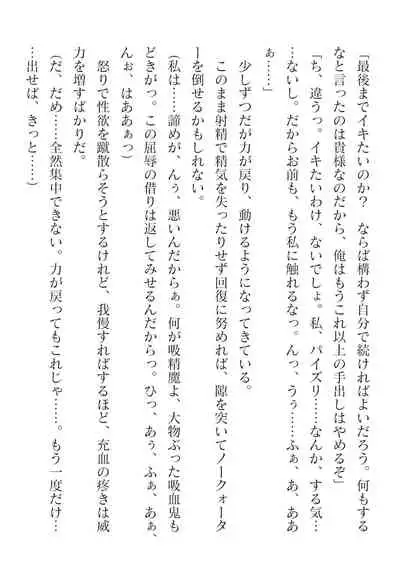 「最後までイキたいのか？　ならば構わず自分で続ければよいだろう。何もする
なと言ったのは貴様なのだから、俺はもうこれ以上の手出しはやめるぞ」
「ち、違うっ。イキたいわけ、ないでしょ。私、パイズリ……なんか、する気…
…ないし。だからお前も、もう私に触れるなっ。んっ、うぅ……ふぁ、あ、ああ
ぁ……」
　少しずつだが力が戻り、動けるようになってきている。
　このまま射精で精気を失ったりせず回復に努めれば、隙を突いてノークォータ
ーを倒せるかもしれない。
（私は……諦めが、んぅ、悪いんだからぁ。何が吸精魔よ、大物ぶった吸血鬼も
どきがっ。この屈辱の借りは返してみせるんだからっ。ひっ、あぅ、ふぁ、あぁ、
んぉ、はああぁっ）
　怒りで性欲を蹴散らそうとするけれど、我慢すればするほど、充血の疼きは威
力を増すばかりだ。
（だ、だめ……全然集中できない。力が戻ってもこれじゃ……。もう一度だけ…
…出せば、きっと……）